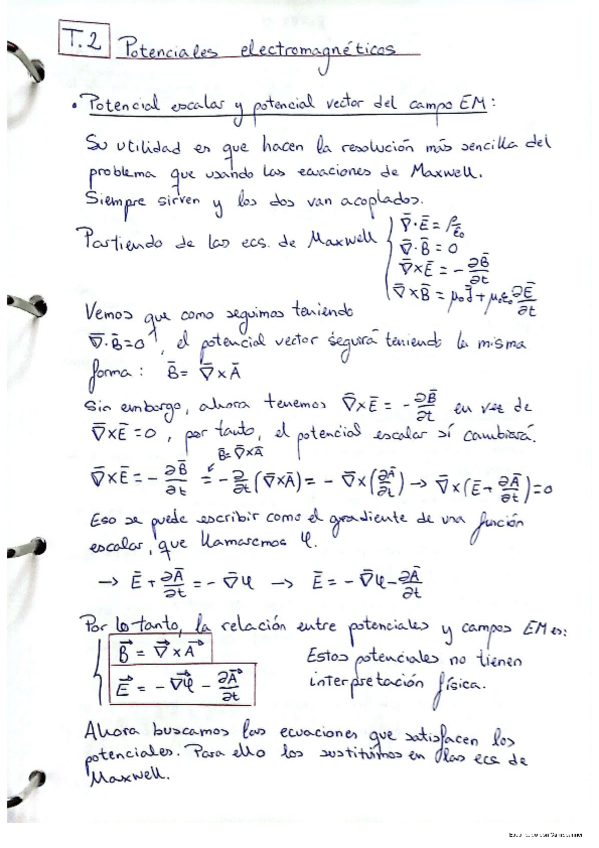 T.2 Potenciales electromagnéticos
• Potencial escalar y potencial vector del campo EM:
Su utilidad es que hacen la resolución más sencilla del
problema que usando las ecuaciones de Maxwell.
Siempre sirven y los dos van acoplados.
Partiendo de las ecs. de Maxwell { ∇̄·Ē = ρ/ε₀
∇̄·B̄ = 0
∇̄×Ē = -∂B̄/∂t
∇̄×B̄ = μ₀J̄ + μ₀ε₀ ∂Ē/∂t
Vemos que como seguimos teniendo
∇̄·B̄=0, el potencial vector seguirá teniendo la misma
forma: B̄ = ∇̄×Ā
Sin embargo, ahora tenemos ∇̄×Ē = -∂B̄/∂t en vez de
∇̄×Ē=0, por tanto, el potencial escalar sí cambiará.
B̄=∇̄×Ā
∇̄×Ē = -∂B̄/∂t = -∂/∂t(∇̄×Ā) = -∇̄×(∂Ā/∂t) → ∇̄×(Ē+∂Ā/∂t)=0
Eso se puede escribir como el gradiente de una función
escalar, que llamaremos φ.
→ Ē+∂Ā/∂t = -∇̄φ → Ē = -∇̄φ-∂Ā/∂t
Por lo tanto, la relación entre potenciales y campos EM es:
{ B⃗ = ∇⃗×A⃗
E⃗ = -∇⃗φ - ∂A⃗/∂t
Estos potenciales no tienen
interpretación física.
Ahora buscamos las ecuaciones que satisfacen los
potenciales. Para ello los sustituimos en las ecs de
Maxwell.